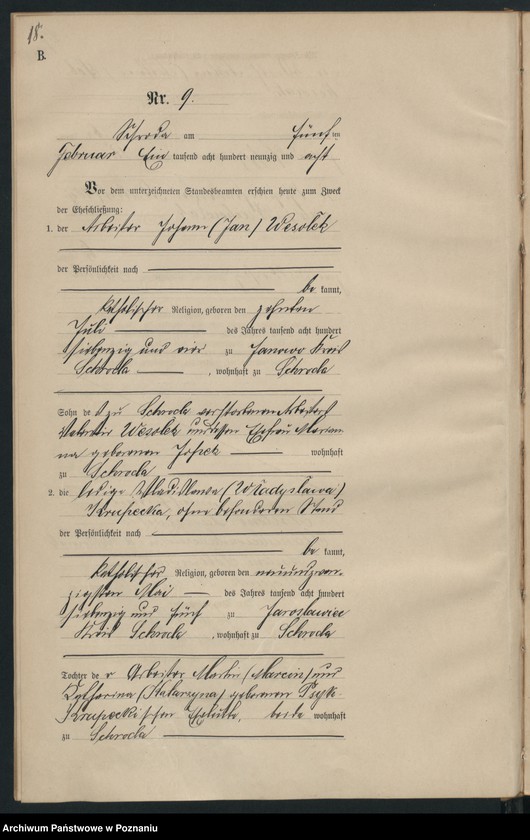 18.
B.
Nr. 9.
Schroda am fünften
Februar Ein tausend acht hundert neunzig und acht
Vor dem unterzeichneten Standesbeamten erschien heute zum Zweck
der Eheschließung:
1. der Arbeiter Johann (Jan) Wesolek
der Persönlichkeit nach
be kannt,
katholischer Religion, geboren den zehnten
Juli des Jahres tausend acht hundert
siebenzig und vier zu Janowo Kreis
Schroda , wohnhaft zu Schroda
Sohn des zu Schroda verstorbenen Arbeiters
Wesolek und dessen Ehefrau Marian-
na geborenen wohnhaft
zu Schroda
2. die ledige Wladislawa (Władysława)
Krupecka, ohne besonderen Stand
der Persönlichkeit nach
be kannt,
katholischer Religion, geboren den neunundzwan-
zigsten Mai des Jahres tausend acht hundert
siebenzig und fünf zu Jaroslawiec
Kreis Schroda , wohnhaft zu Schroda
Tochter der Arbeiter Martin (Marcin) und
Katharina (Katarzyna) geborenen
Krupeckischen Eheleute, beide wohnhaft
zu Schroda
Archiwum Państwowe w Poznaniu